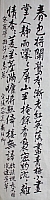 春色將闌鶯聲漸老紅英落盡青梅小畫
堂人靜雨濛濛屏山半掩餘香裊密約沉
沉離情杳杳菱花塵滿慵將照倚樓無語欲
銷魂長空黯淡連芳草